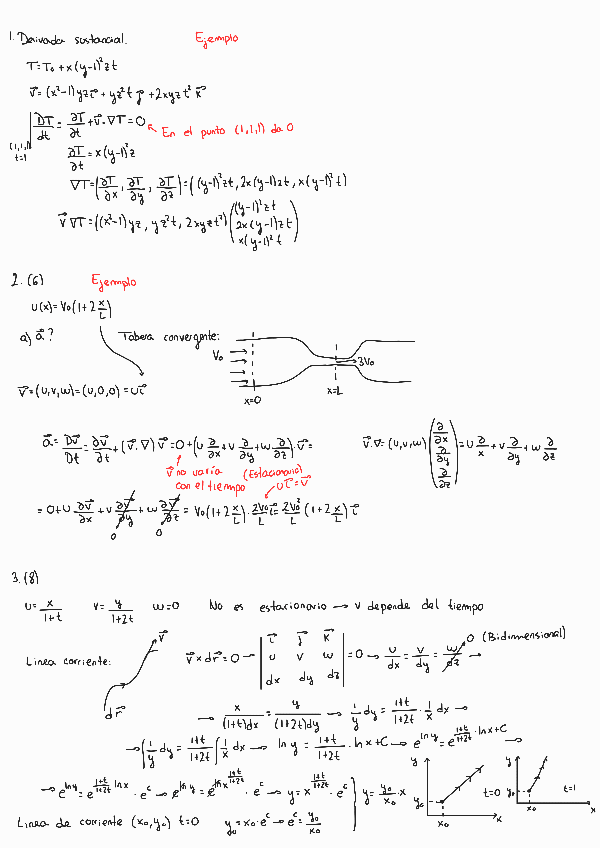 1. Derivada sustancial. Ejemplo
T=T₀+x(y-1)²zt
v⃗=(x²-1)yz i⃗+yz²t j⃗+2xyzt² k⃗
(1,1,1) t=1 | DT/dt = ∂T/∂t + v⃗·∇T=0 En el punto (1,1,1) da 0
∂T/∂t = x(y-1)²z
∇T=(∂T/∂x, ∂T/∂y, ∂T/∂z)=((y-1)²zt, 2x(y-1)zt, x(y-1)²t)
v⃗ ∇T=((x²-1)yz, yz²t, 2xyzt²) ((y-1)²zt
2x(y-1)zt
x(y-1)²t)
2.(6) Ejemplo
u(x)=V₀(1+2x/L)
a) a⃗? Tobera convergente:
V₀
3V₀
x=0 x=L
v⃗=(u,v,w)=(u,0,0)=u i⃗
a⃗=Dv⃗/Dt=∂v⃗/∂t+(v⃗·∇)v⃗=0+(u ∂/∂x+v ∂/∂y+w ∂/∂z)·v⃗= v⃗·∇=(u,v,w)(∂/∂x ∂/∂y ∂/∂z)=u ∂/x+v ∂/∂y+w ∂/∂z
v⃗ no varía (Estacionario)
con el tiempo u i⃗=v⃗
=0+u ∂v⃗/∂x+v ∂v⃗/∂y+w ∂v⃗/∂z=V₀(1+2x/L)·2V₀/L i⃗=2V₀²/L(1+2x/L) i⃗
0 0
3.(8)
u=x/1+t v=y/1+2t w=0 No es estacionario → v depende del tiempo
Linea corriente: v⃗ dr⃗ v⃗×dr⃗=0 → | i⃗ j⃗ k⃗ u v w dx dy dz | =0 → u/dx=v/dy=w/dz → 0 (Bidimensional)
→ x/(1+t)dx=y/(1+2t)dy → 1/y dy=1+t/1+2t·1/x dx →
→ ∫1/y dy=1+t/1+2t ∫1/x dx → ln y=1+t/1+2t·ln x+C → e^(ln y)=e^(1+t/1+2t·ln x+C) →
→ e^(ln y)=e^(1+t/1+2t ln x)·e^c → e^(ln y)=e^(ln x^(1+t/1+2t))·e^c → y=x^(1+t/1+2t)·e^c y=y₀/x₀·x
y y₀ x₀ x t=0 y y₀ x₀ x t=1
Linea de corriente (x₀,y₀) t=0 y₀=x₀·e^c → e^c=y₀/x₀